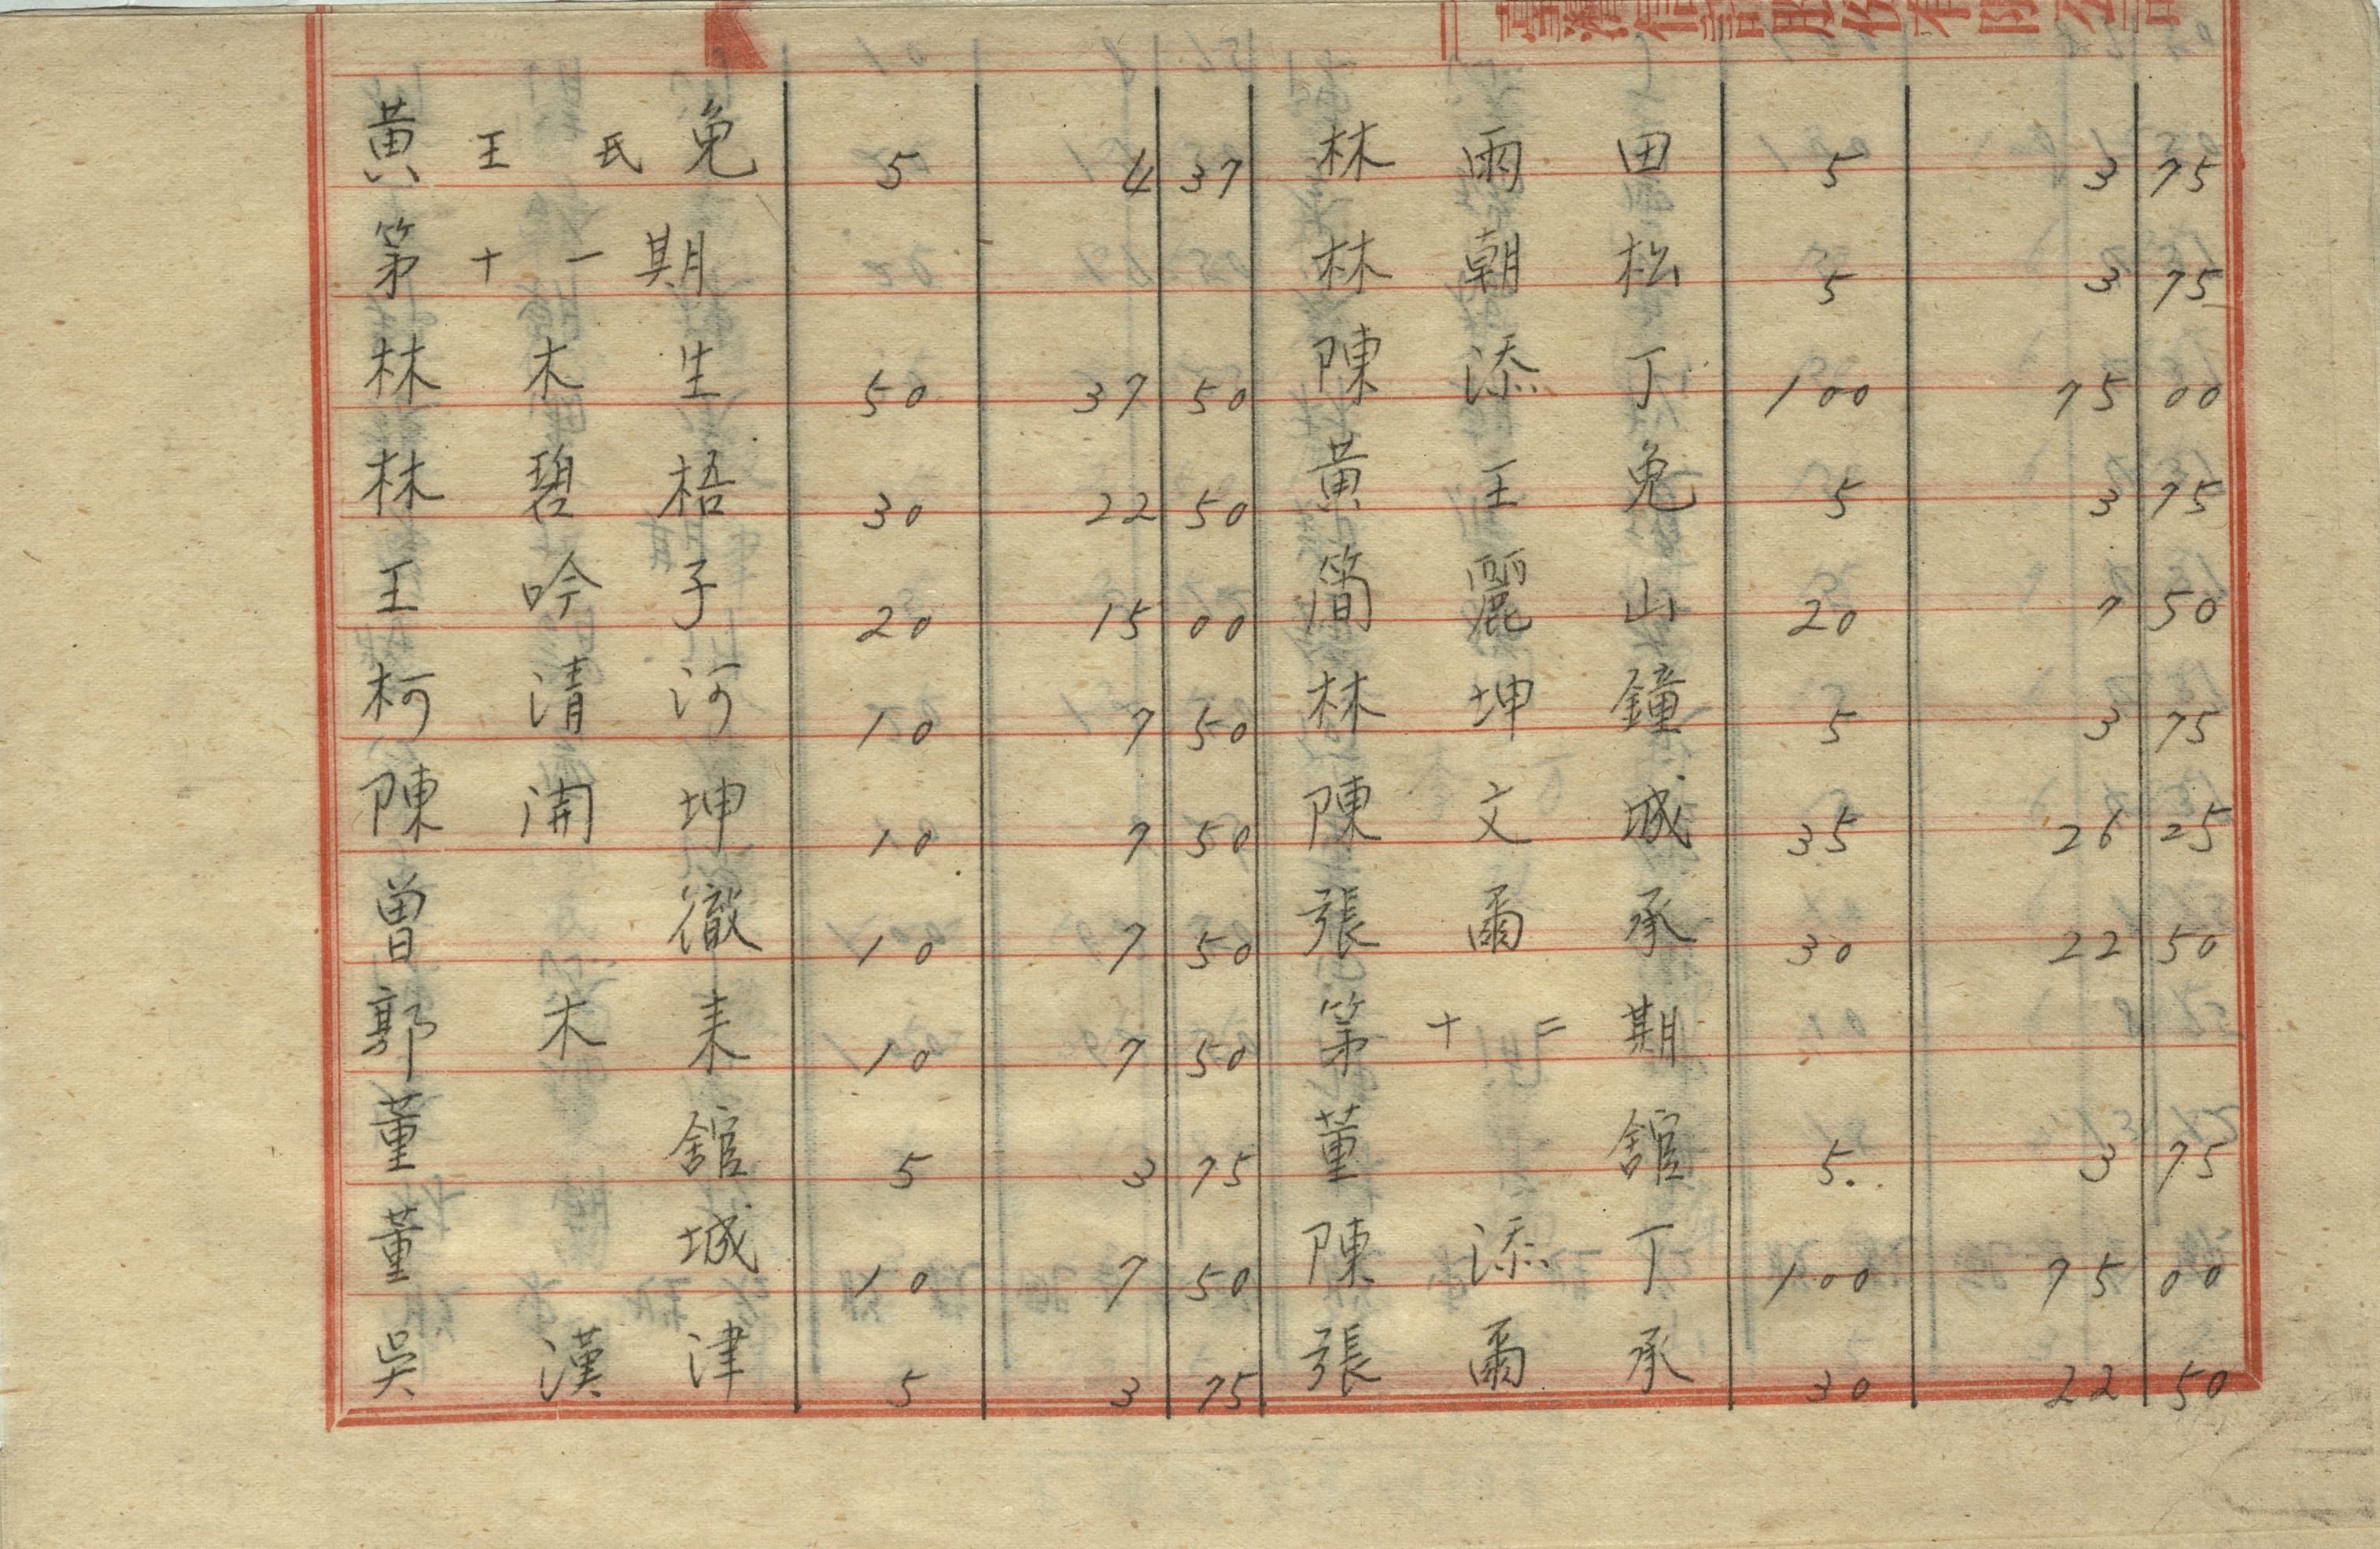 臺灣信託股份有限公司
黃王氏兔 5 4 37
第十一期
林木生 50 37 50
林碧梧 30 22 50
王吟子 20 15 00
柯清河 10 7 50
陳開坤 10 7 50
曾徹 10 7 50
郭木耒 10 7 50
董舘 5 3 75
董城 10 7 50
吳漢津 5 3 75
林雨田 5 3 75
林朝松 5 3 75
陳添丁 100 75 00
黃王兔 5 3 75
簡麗山 20 7 50
林坤鐘 5 3 75
陳文城 35 26 25
張爾承 30 22 50
第十二期
董舘 5. 3 75
陳添丁 100 75 00
張爾承 30 22 50